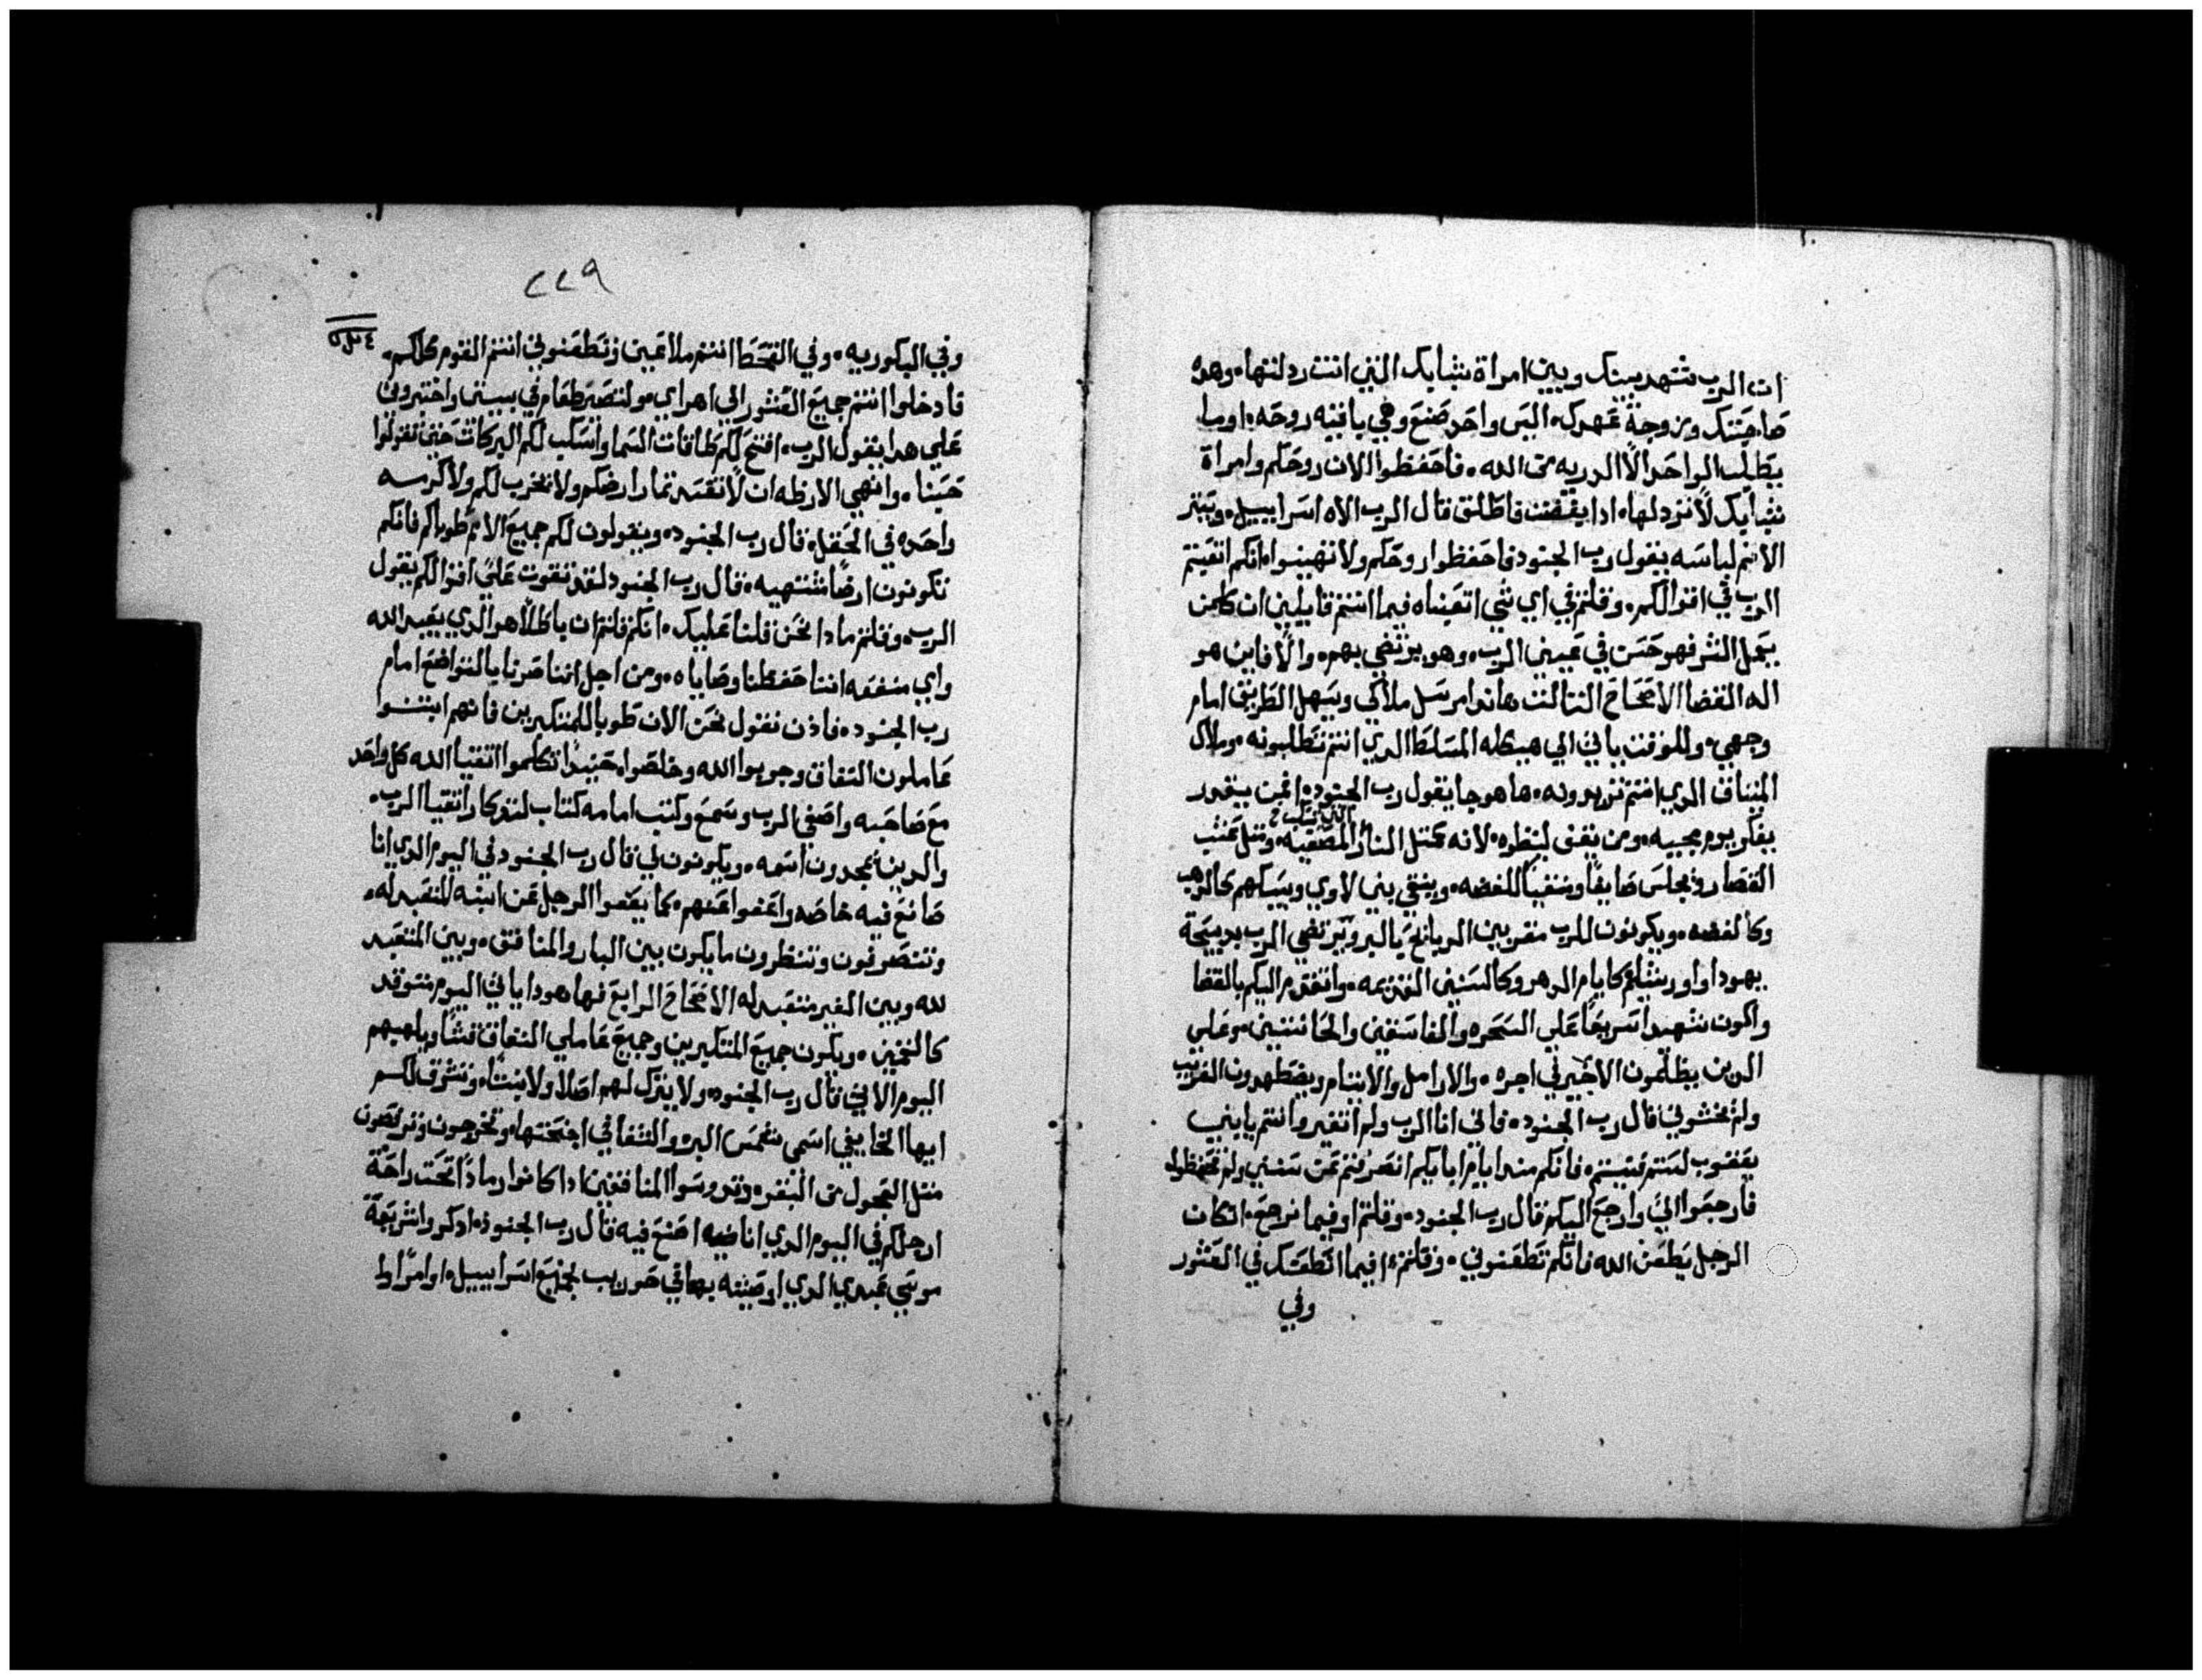 ان الرب شهد بينك وبين امراة شبابك التي انت ردلتها. وهده
صاحبتك وزوجة عهدك. اليس واحد صنع وهي باقيه روحه. اوما
يطلب الواحد الا الدريه من الله. فاحفظوا الان روحكم وامراة
شبابك لا تردلها. ادا يقفت فاطلق قال الرب الاه اسراييل. ويستر
الاثم لباسه يقول رب الجنود فاحفظوا روحكم ولا تهينوا. انكم اتعبتم
الرب في اقوالكم. وقلتم في اي شي اتعبناه فيما انتم قايلين ان كلمن
يعمل الشر فهو حسن في عيني الرب. وهو يرتضي بهم. والا فاين هو
اله القضا الاصحاح التالت هاندا مرسل ملاكي ويسهل الطريق امام
وجهي. وللوقت ياتي الي هيكله المسلط الدي انتم تطلبونه. وملاك
الميتاق الدي انتم تريدونه. ها هو جا يقول رب الجنود. فمن يقدر
يفكر يوم مجييه. ومن يقف لينظره. لانه كمتل النار المصفيه. ومتل عشب
القصارو. يجلس صايغا ومنقيا للفضه. وينقي بني لاوي ويسبكهم كالدهب
وكالفضه. ويكونون للرب مقربين الدبايح بالبر وترتضي الرب بدبيحة
يهودا واورشليم كايام الدهر وكالسنين القديمه. واتقدم اليكم بالقضا
واكون شهيدا سريعا علي السحره والفاسقين والحانتين. وعلي
الدين يظلمون الاخير في اجره. والارامل والايتام ويضطهدون الغريب
ولم يخشوني قال رب الجنود. فاني انا الرب ولم اتغير وانتم يا بني
يعقوب لستم فنيتم. فانكم مند ايام ابايكم انصرفتم عن سنني ولم تحفظوا.
فارجعوا الي وارجع اليكم قال رب الجنود. وقلتم اوفيما نرجع. ان كان
الرجل يطعن الله فانكم تطعنوني. وقلتم. فيما انطعنك في العشور
وفي
٢٢٩
وفي البكوريه. وفي القحط انتم ملاعين وتطعنوني انتم القوم كلكم.
فادخلوا انتم جميع العشور الي اهراي. ولتصر طعام في بيتي واختبروني
علي هدا يقول الرب. افتح لكم طاقات السما واسكب لكم البركات حتي تقولوا
حسبنا. وانهي الارظه ان لا تفسد تمار ارضكم ولا تخرب لكم ولا كرسه
واحده في الحقل. قال رب الجنود. ويقولون لكم جميع الامم طوباكم فانكم
تكونون ارضا مشتهيه. قال رب الجنود لقد تقوت علي اقوالكم يقول
الرب. وقلتم مادا نحن قلنا عليك. انكم قلتم ان باطلا هو الدي يعبد الله
واي منفعه اننا حفظنا وصاياه. ومن اجل اننا صرنا بالتواضع امام
رب الجنود. فادن نقول نحن الان طوبا للمتكبرين فانهم ابتنوا
عاملون النفاق وجربوا الله وخلصوا. حينيدا تكلموا اتقيا الله كل واحد
مع صاحبه واصغي الرب وسمع وكتب امامه كتاب لتدكار اتقيا الرب.
والدين يمجدون اسمه. ويكونون لي قال رب الجنود في اليوم الدي انا
صانع فيه خاصه واعفوا عنهم. كما يعفوا الرجل عن ابنه المتعبد له.
وتتصرفون وتنظرون ما يكون بين البار والمنافق. وبين المتعبد
لله وبين الغير متعبد له الاصحاح الرابع فها هودا ياتي اليوم متوقد
كالتنين. ويكون جميع المتكبرين وجميع عاملي النفاق قشا ويلهبهم
اليوم الاتي قال رب الجنود. ولا يترك لهم اصلا ولا بنتا. وتشرق لكم
ايها الخايفي اسمي شمس البر. والشفا في اجنحتها. وتخرجون وترتصون
متل العجول من البقر. وتدوسوا المنافقين ادا كانوا رمادا تحت راحة
ارجلكم في اليوم الدي انا فيه اصنع فيه قال رب الجنود. ادكروا شريعة
موسي عبدي الدي اوصيته بها في حوريب لجميع اسراييل. اوامرا وا